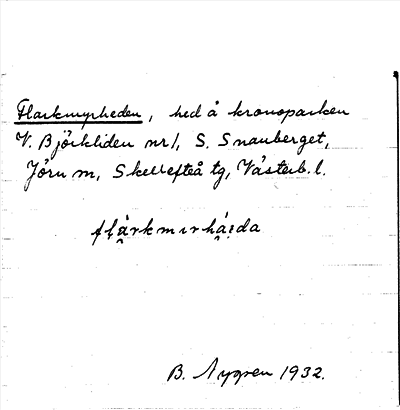 Flarkmyrheden, hed å kronoparken
V. Björkliden nr 1, S. Snauberget,
Jörn m, Skellefteå tg, Västerb. l.
flárkmɩrhá̱ıda
B. Nygren 1932.